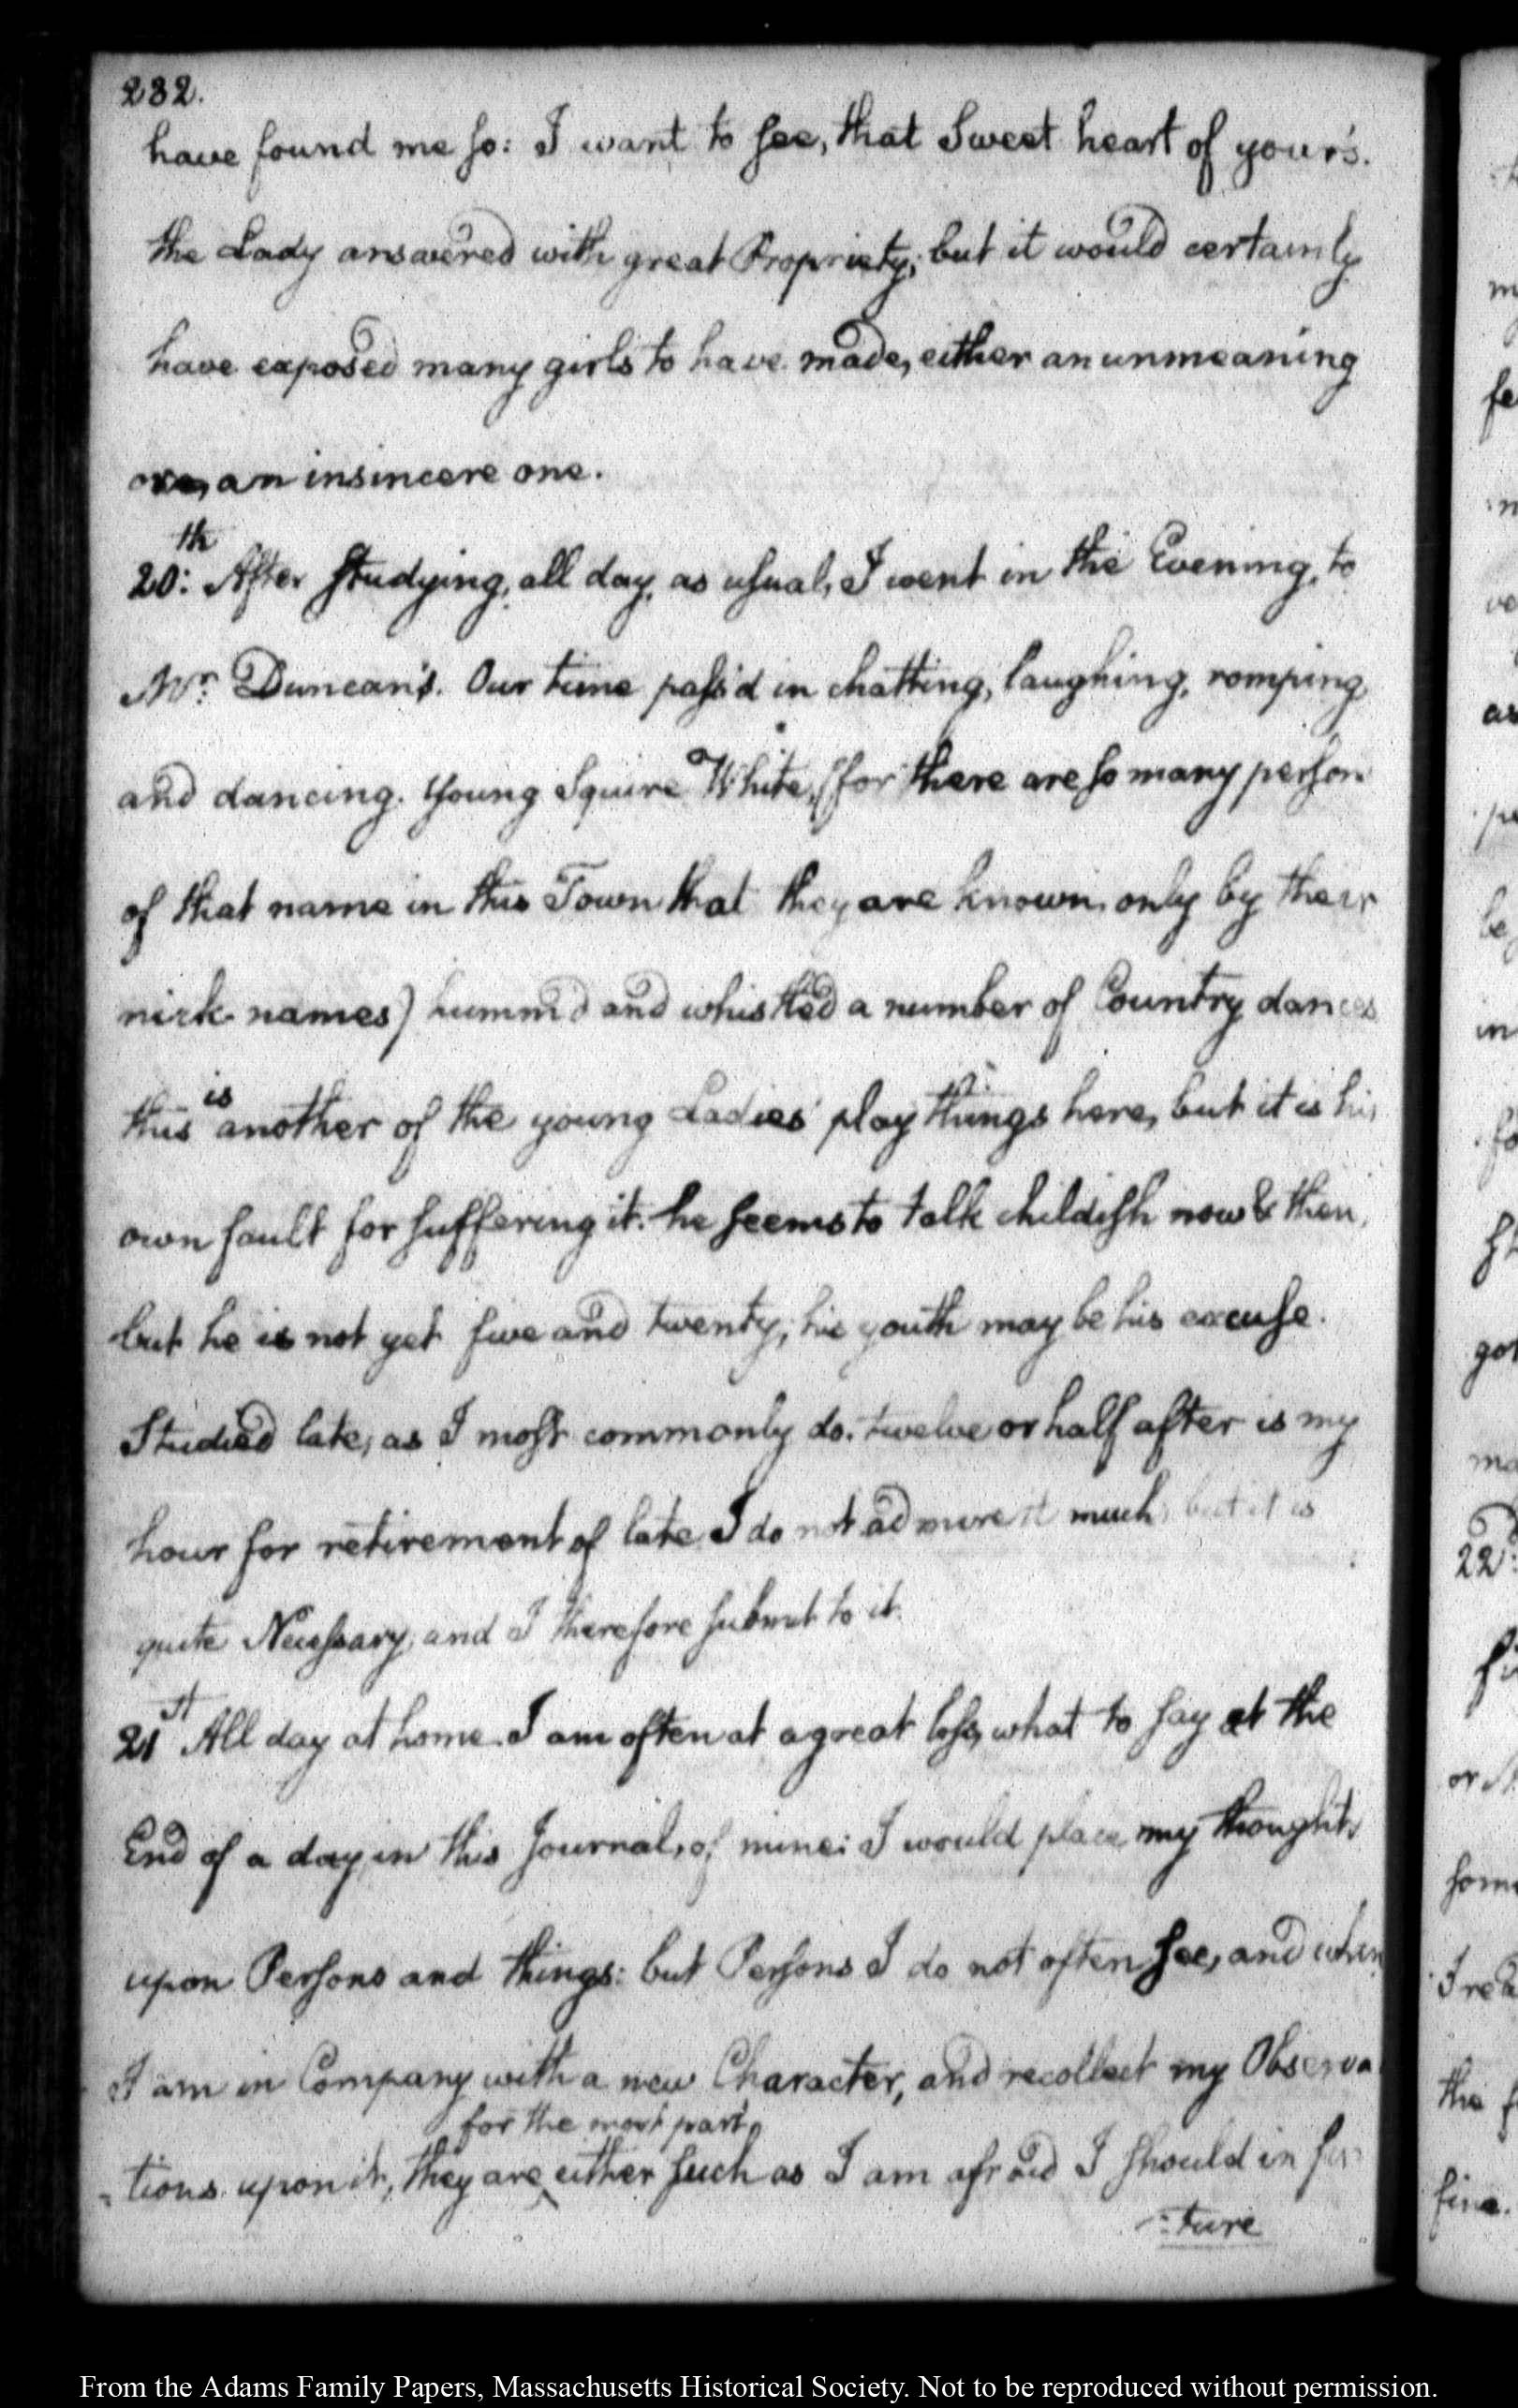 232.
have found me so: I want to see, that Sweet heart of your's.
the Lady answered with great Propriety; but it would certainly
have exposed many girls to have made, either an unmeaning
or, an insincere one.
20:th After studying, all day, as usual, I went in the Evening, to
Mr: Duncan's. Our time pass'd in chatting, laughing, romping,
and dancing. Young Squire White, (for there are so many person
of that name in this Town that they are known only by their
nick names) humm'd and whistled a number of Country dances
this is another of the young Ladies' play things here, but it is his
own fault for suffering it: he seems to talk childish now & then,
but he is not yet five and twenty; his youth may be his excuse.
Studied late, as I most commonly do. twelve or half after is my
hour for retirement of late I do not admire it much, but it is
quite Necessary, and I therefore submit to it.
21st All day at home. I am often at a great loss, what to say at the
End of a day, in this Journal, of mine: I would place my thoughts
upon Persons and things: but Persons I do not often see, and when
I am in Company with a new Character, and recollect my Observa
-tions upon it, they are for the most part either such as I am afraid I should in fu
-ture
m
fe
ve
as
be
in
fo
got
22:
or
some
I read
the f
fine.
From the Adams Family Papers, Massachusetts Historical Society. Not to be reproduced without permission.